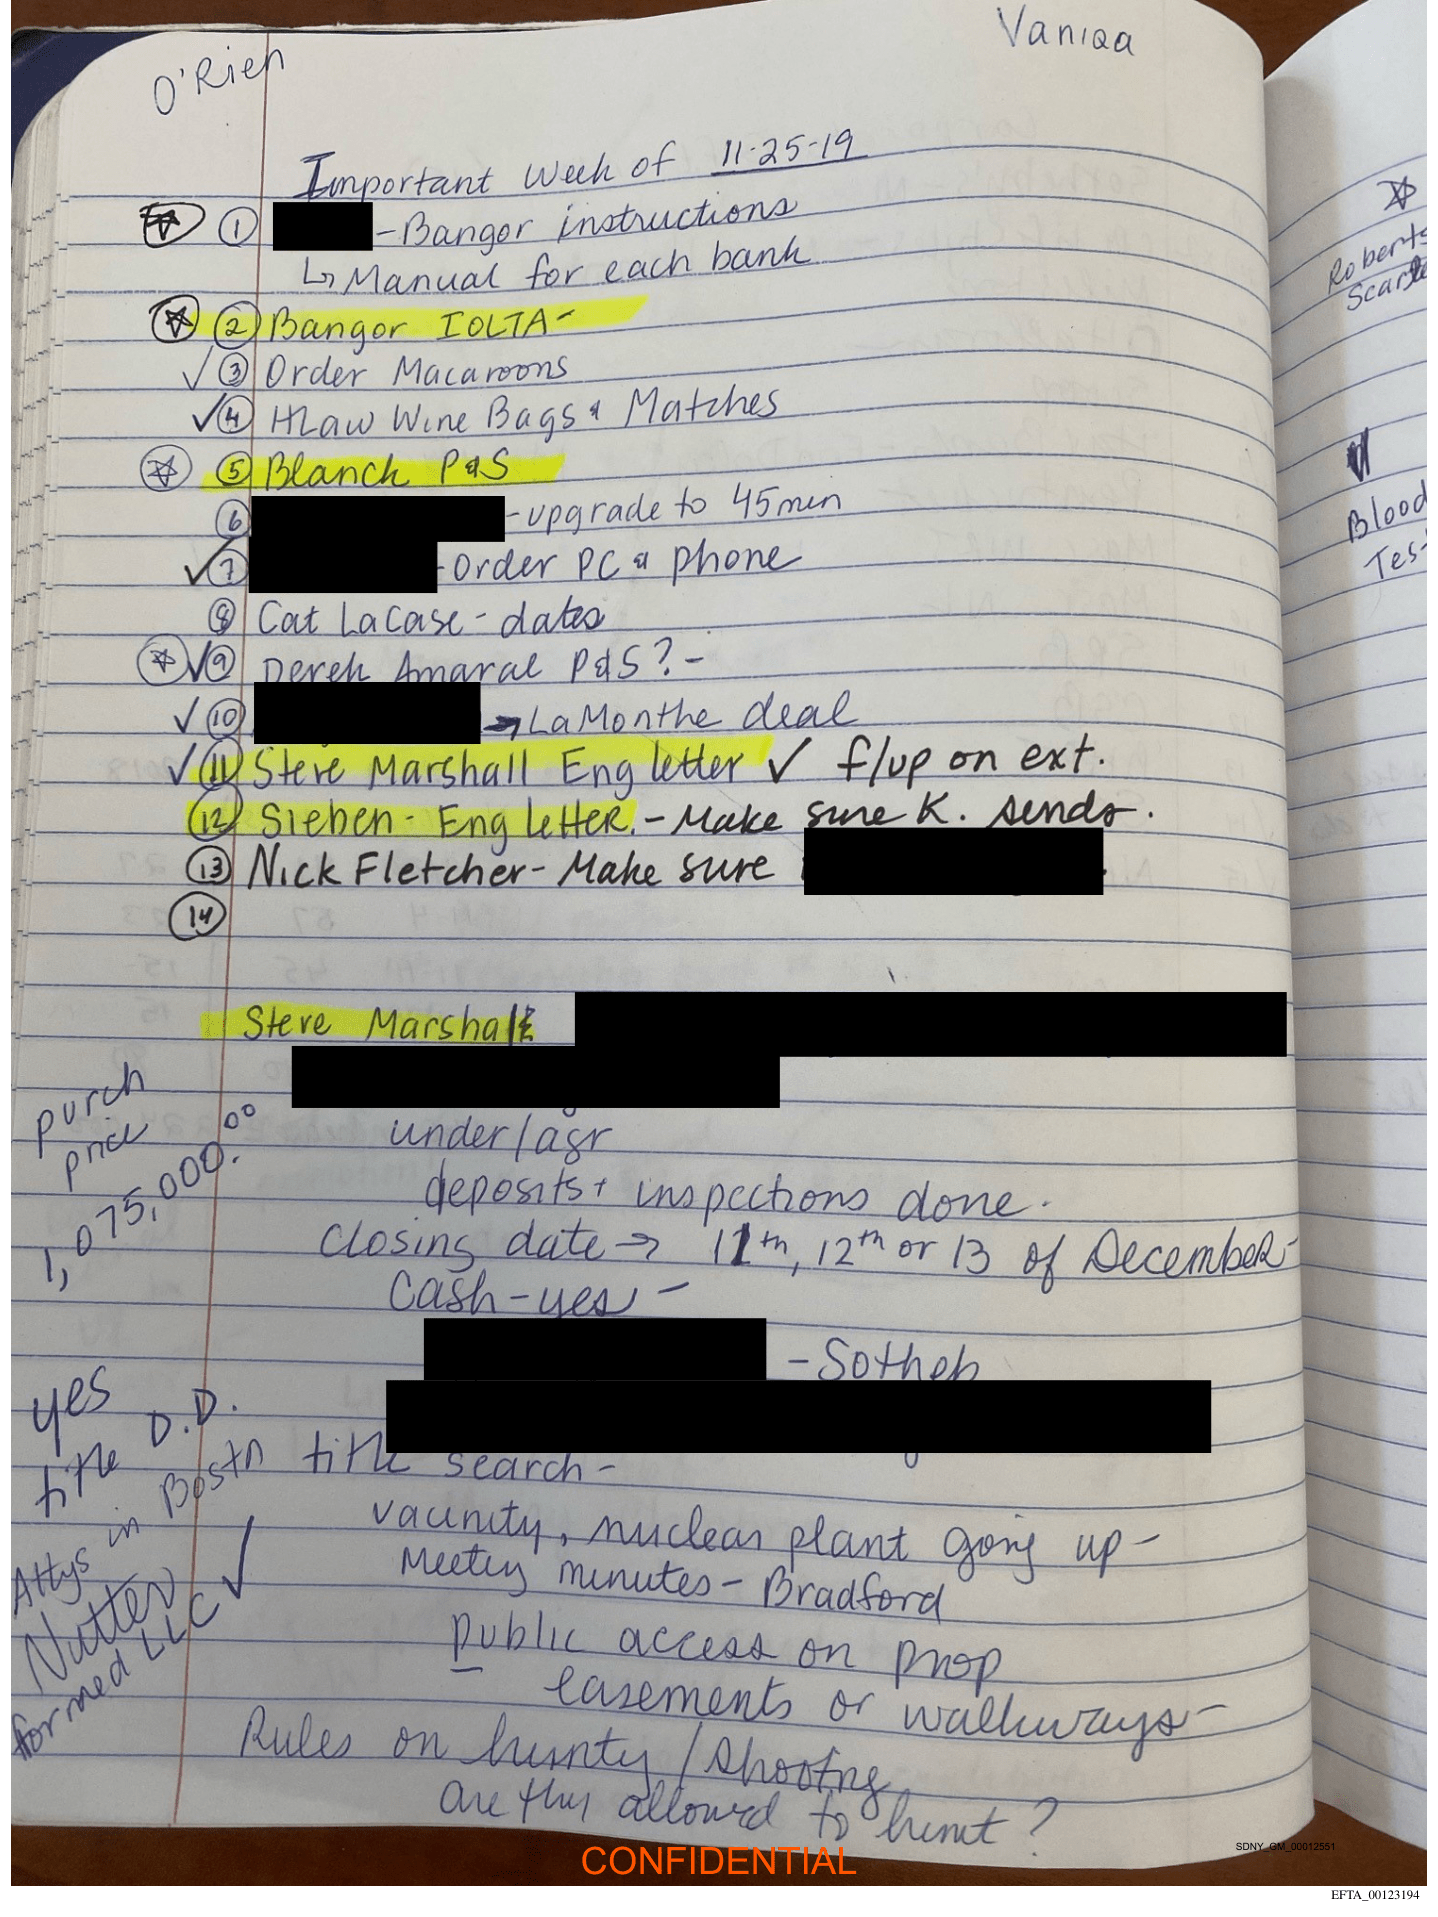 O'Rien
Vaniqa
Important Week of 11-25-19
① -Bangor instructions
↳ Manual for each bank
② Bangor IOLTA-
✓ ③ Order Macaroons
✓ ④ HLaw Wine Bags & Matches
⑤ Blanch P&S
⑥ -upgrade to 45min
✓ ⑦ -Order PC & phone
⑧ Cat LaCase - dates
✓ ⑨ Derek Amaral P&S? -
✓ ⑩ → LaMonthe deal
✓ ⑪ Steve Marshall Eng letter ✓ f/up on ext.
⑫ Sieben - Eng letter. - Make sure K. sends.
⑬ Nick Fletcher - Make sure
⑭
Steve Marshall
purch
price
1,075,000.00
under/agr
deposits + inspections done.
Closing date → 11th, 12th or 13 of December -
Cash - yes -
- Sotheb
yes
title D.D.
Attys in Bostn
Nutter
formed LLC ✓
title search -
nuclear plant going up -
Meeting minutes - Bradford
public access on prop
easements or walkways -
Rules on hunty / shooting
are they allowed to hunt?
Roberts
Blood
CONFIDENTIAL
SDNY_GM_00012551
EFTA_00123194